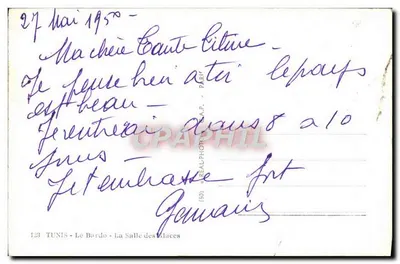 27 Mai 1950 -
Ma chère Tante Titine -
Je pense bien à toi le pays
est beau -
Je rentrerai dans 8 a 10
jours -
Je t'embrasse fort
Germaine
128 TUNIS - Le Bardo - La Salle des Glaces
CPARAMA